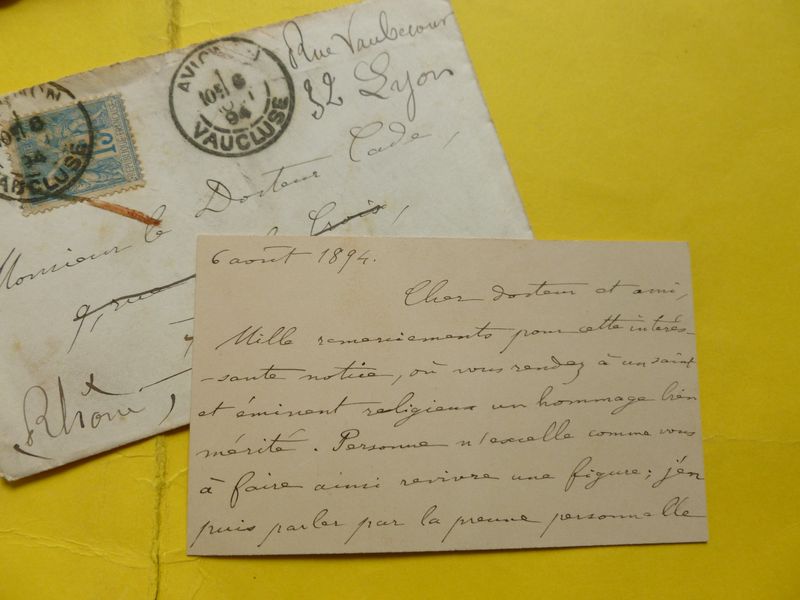 Rue Vaubecour
32 Lyon
AVIGNON
10E 6
AOUT
94
VAUCLUSE
94
VAUCLUSE
15
REPUBLIQUE FRANCAISE
Monsieur le Docteur Cade,
9, rue la Croix,
(Rhône)
6 août 1894.
Cher docteur et ami,
Mille remerciements pour cette intéres-
-sante notice, où vous rendez à un saint
et éminent religieux un hommage bien
mérité. Personne n'excelle comme vous
à faire ainsi revivre une figure; j'en
puis parler par la preuve personnelle